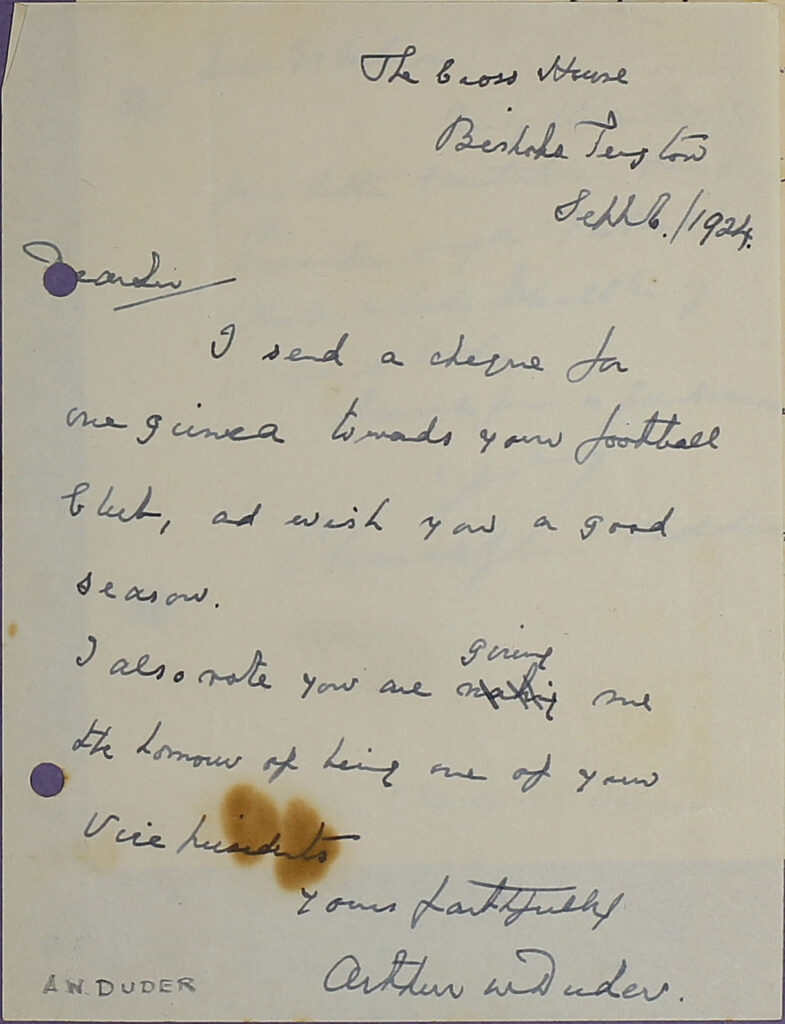 The Cross House
Bishops Teignton
Sept 6./1924.
Dear Sir
I send a cheque for
one guinea towards your football
Club, and wish you a good
season.
giving
I also note you are making me
the honour of being one of your
Vice presidents
Yours faithfully
Arthur W Duder.
A.W. DUDER